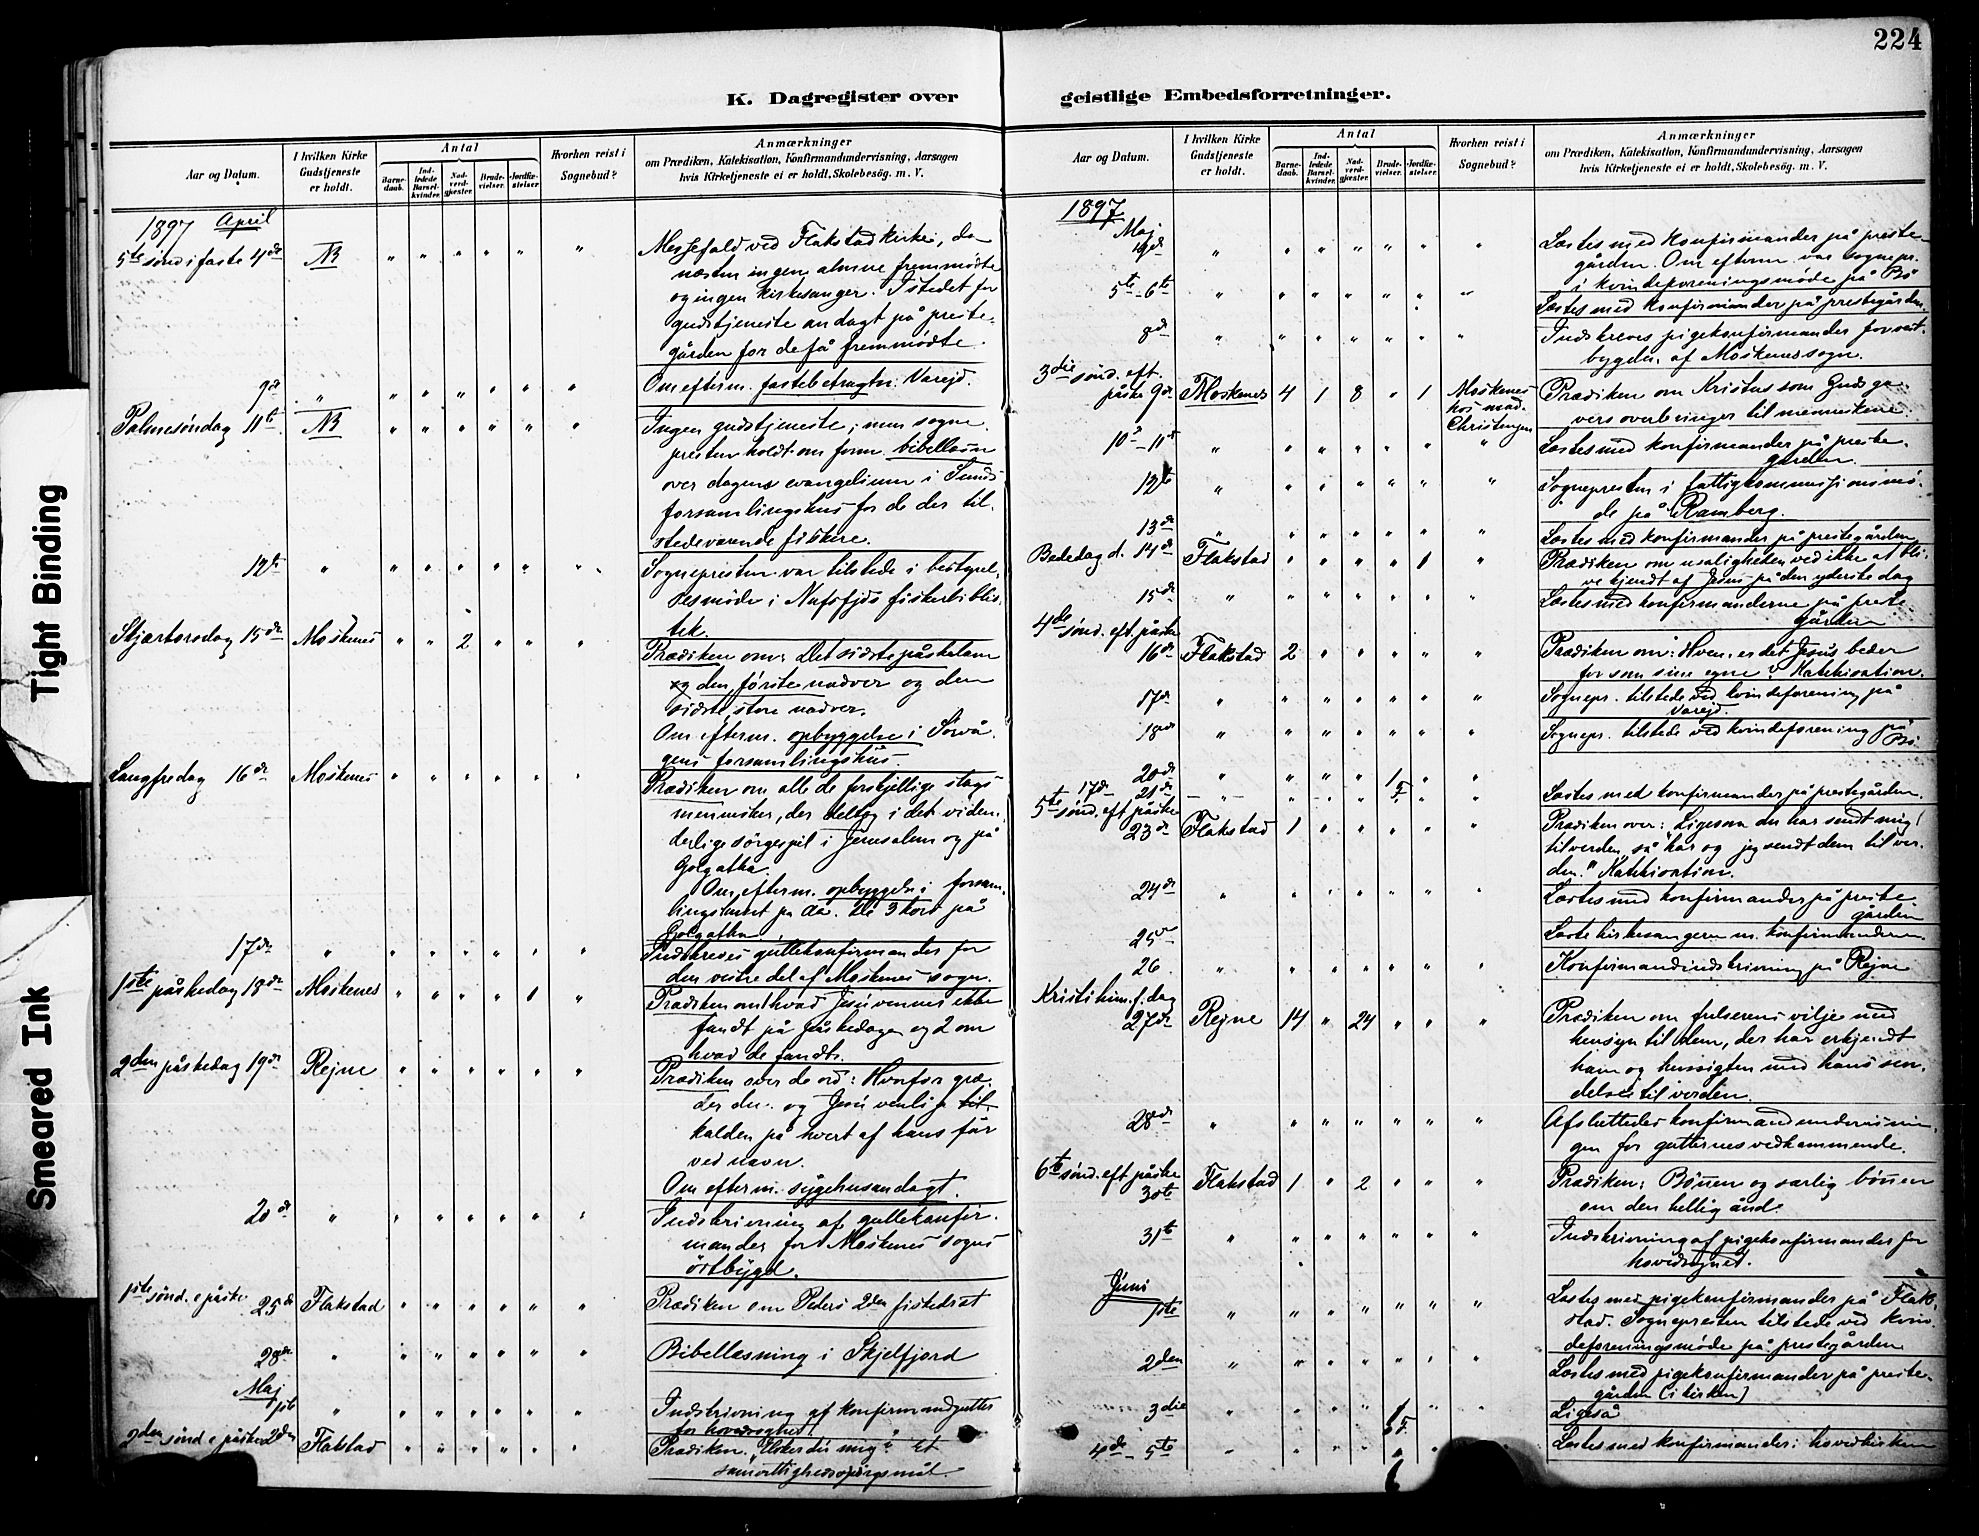 224
K. Dagregister over
geistlige Embedsforretninger.
Tight Binding
Smeared Ink
Aar og Datum.
I hvilken Kirke
Gudstjeneste
er holdt.
Antal
Barne-
daab.
Ind-
ledede
Barsel-
kvinder.
Nad-
verd-
gjester.
Brude-
vielser.
Jordfæ-
stelser.
Hvorhen reist i
Sognebud?
Anmærkninger
om Prædiken, Katekisation, Konfirmandundervisning, Aarsagen
hvis Kirketjeneste ei er holdt, Skolebesög. m. V.
1897 April
5te sönd i faste 4de NB " " " " " " Messefald ved Flakstad kirke, da
næsten ingen almue fremmödte
og ingen kirkesanger. Istedet for
gudstjeneste andagt på preste-
gården for de få fremmödte.
9de " " " " " " " Om efterm. fastebetragtn. Varejd.
Palmesöndag 11te NB " " " " " " Ingen gudstjeneste; men sogne-
presten holdt om form. bibellæsn
over dagens evangelium i Sunds
forsamlingshus for de der til-
stedeværende fiskere.
12te " " " " " " " Sognepresten var tilstede i bestyrel-
sesmöde i Nufsfjds fiskerbiblio-
tek.
Skjærtorsdag 15de Moskenes " " 2 " " " Prædiken om: Det sidste påskelam
og den förste nadver og den
sidste, store nadver.
Om efterm. opbyggelse i Sörvå-
gens forsamlingshus.
Langfredag 16de Moskenes " " " " " " Prædiken om alle de forskjellige slags
mennesker, der deltog i det viden-
derlige sörgespil i Jerusalem og på
Golgatha.
Om efterm. opbyggelse i forsam-
lingshuset på Aa. De 3 kors på
Golgatha
17de " " " " " " " Indskreves guttekonfirmander for
den vestre del af Moskenes sogn.
1ste påskedag 18de Moskenes " " " " 1 " Prædiken om 1 hvad Jesu venner ikke
fandt på påskedagen og 2 om
hvad de fandt.
2den påskedag 19de Rejne " " " " " " Prædiken over de ord: Hvorfor græ-
der du. og Jesu venlige
kalden på hvert af hans får
ved navn.
Om efterm. sygehusandagt.
20de " " " " " " " Indskrivning af guttekonfir-
mander for Moskenes sogns
östbygd.
1ste sönd. e påske 25de Flakstad " " " " " " Prædiken om Peders 2den fiskedræt
28de " " " " " " " Bibellæsning i Skjelfjord
Maj
1ste " " " " " " " Indskrivning af konfirmandgutter
for hovedsognet.
2den sönd e påske 2den Flakstad " " " " " " Prædiken. "Elsker du mig"? Et
samvittighedsspörgsmål.
Aar og Datum.
I hvilken Kirke
Gudstjeneste
er holdt.
Antal
Barne-
daab.
Ind-
ledede
Barsel-
kvinder.
Nad-
verd-
gjester.
Brude-
vielser.
Jordfæ-
stelser.
Hvorhen reist i
Sognebud?
Anmærkninger
om Prædiken, Katekisation, Konfirmandundervisning, Aarsagen
hvis Kirketjeneste ei er holdt, Skolebesög. m. V.
1897
Maj
4de " " " " " " " Læstes med konfirmander på preste-
gården. Om efterm. var sognepr.
i kvindeforeningsmöde på Bö
5te-6te " " " " " " " Læstes med konfirmander på prestegården
8de " " " " " " " Indskreves pigekonfirmander for
bygden af Moskenes sogn.
3die sönd. eft.
påske 9de Moskenes 4 1 8 " 1 Moskenes
hos mad.
Christensen
Prædiken om Kristus som Guds ga-
vers overbringer til menneskene.
10de-11te " " " " " " " Læstes med konfirmander på preste-
gården.
12te " " " " " " " Sognepresten i fattigkommissionsmö-
de på Ramberg.
13de " " " " " " " Læstes med konfirmander på prestegården
Bededag d. 14de Flakstad " " " " 1 " Prædiken om usaligheden ved ikke at bli-
ve kjendt af Jesus på den yderste dag
15de " " " " " " " Læstes med konfirmanderne på preste
gården
4de sönd. eft. påske
16de Flakstad 2 " " " " " Prædiken om: Hvem er det Jesus beder
for som sine egne? Katekisation.
17de " " " " " " " Sognepr. tilstede ved kvindeforening på
Varejd.
18de " " " " " " " Sognepr. tilstede ved kvindeforening på
Bö.
20de " " " " " "
17de 21de " " " " " " Læstes med konfirmander på prestegården.
5te sönd. eft påske
23de Flakstad 1 " " " " " Prædiken over: "Ligesom du har sendt mig
til verden, så har og jeg sendt dem til ver-
den." Katekisation.
24de " " " " " " " Læstes med konfirmander på preste
gården
25de Læste kirkesangeren m. konfirmanderne.
26 " " " " " " " Konfirmandindskrivning på Rejne
Kristi him. f. dag
27de Rejne 14 " 24 " " " Prædiken om frelserens vilje med
hensyn til dem, der har erkjendt
ham og hensigten med hans sen-
delse til verden.
28de " " " " " " " Afsluttedes konfirmandundervisnin-
gen for gutternes vedkommende.
6te sönd. eft påske
30te Flakstad 1 " 2 " " " Prædiken: Bönnen og særlig bönnen
om den hellig ånd.
31te " " " " " " " Indskrivning af pigekonfirmander for
hovedsognet.
Juni
1ste " " " " " " " Læstes med pigekonfirmander på Flak-
stad. Sognepresten tilstede ved kvin-
deforeningsmöde på prestegården
2den " " " " " " " Læstes med pigekonfirmander på preste-
gården (i kirken)
3die " " " " " " Ligeså
4de-5te " " " " " " Læstes med konfirmander i hovedkirken